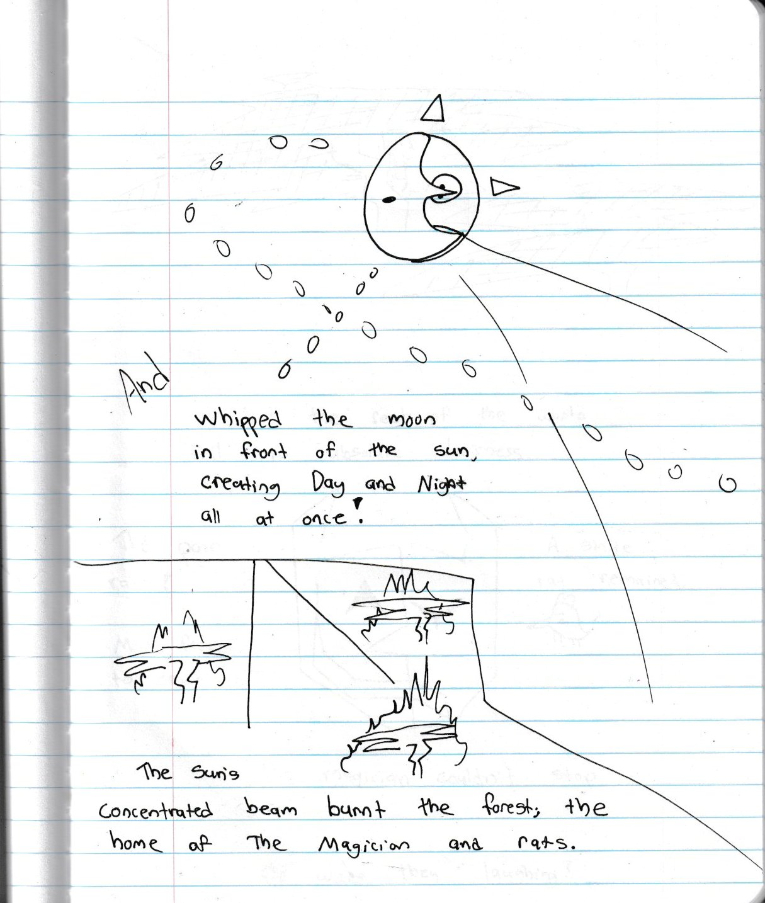 And
whipped the moon
in front of the sun,
creating Day and Night
all at once!
The Sun's
concentrated beam burnt the forest, the
home of The Magician and rats.